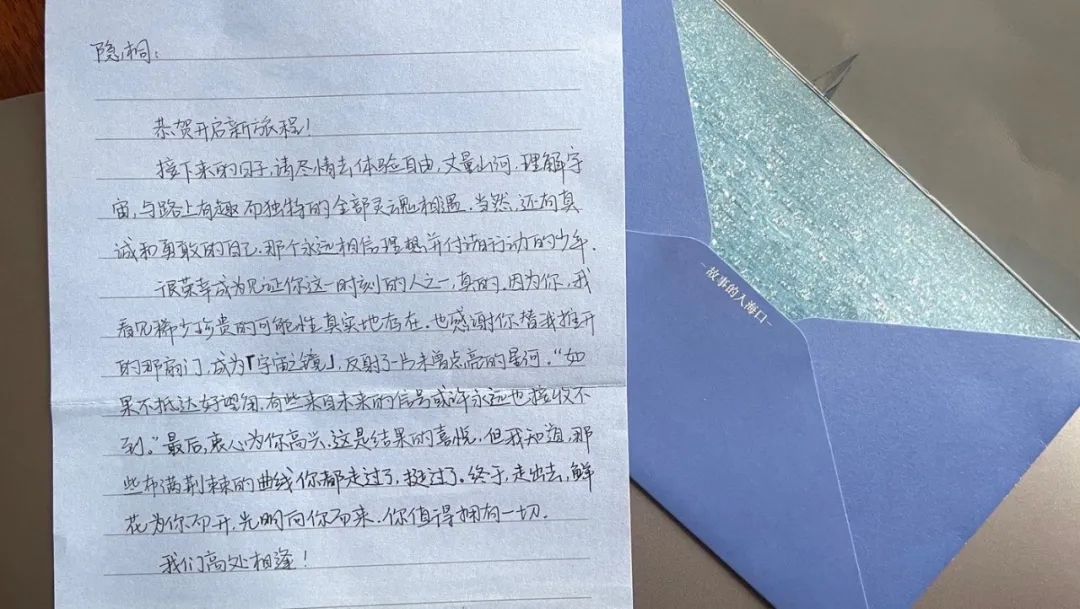 隐桐：
恭贺开启新旅程！
接下来的日子，请尽情去体验自由，丈量山河，理解宇
宙，与路上有趣而独特的全部灵魂相遇。当然，还有真
诚和勇敢的自己，那个永远相信理想并付诸行动的少年。
很荣幸成为见证你这一时刻的人之一，真的。因为你，我
看见稀少珍贵的可能性真实地存在。也感谢你替我推开
的那扇门，成为「宇宙之镜」，反射了一片未曾点亮的星河。“如
果不抵达好望角，有些来自未来的信号或许永远也接收不
到。”最后，衷心为你高兴，这是结果的喜悦，但我知道，那
些布满荆棘的曲线你都走过了，挺过了。终于，走出去，鲜
花为你而开，光明向你而来。你值得拥有一切。
我们高处相逢！
-故事的人海口-